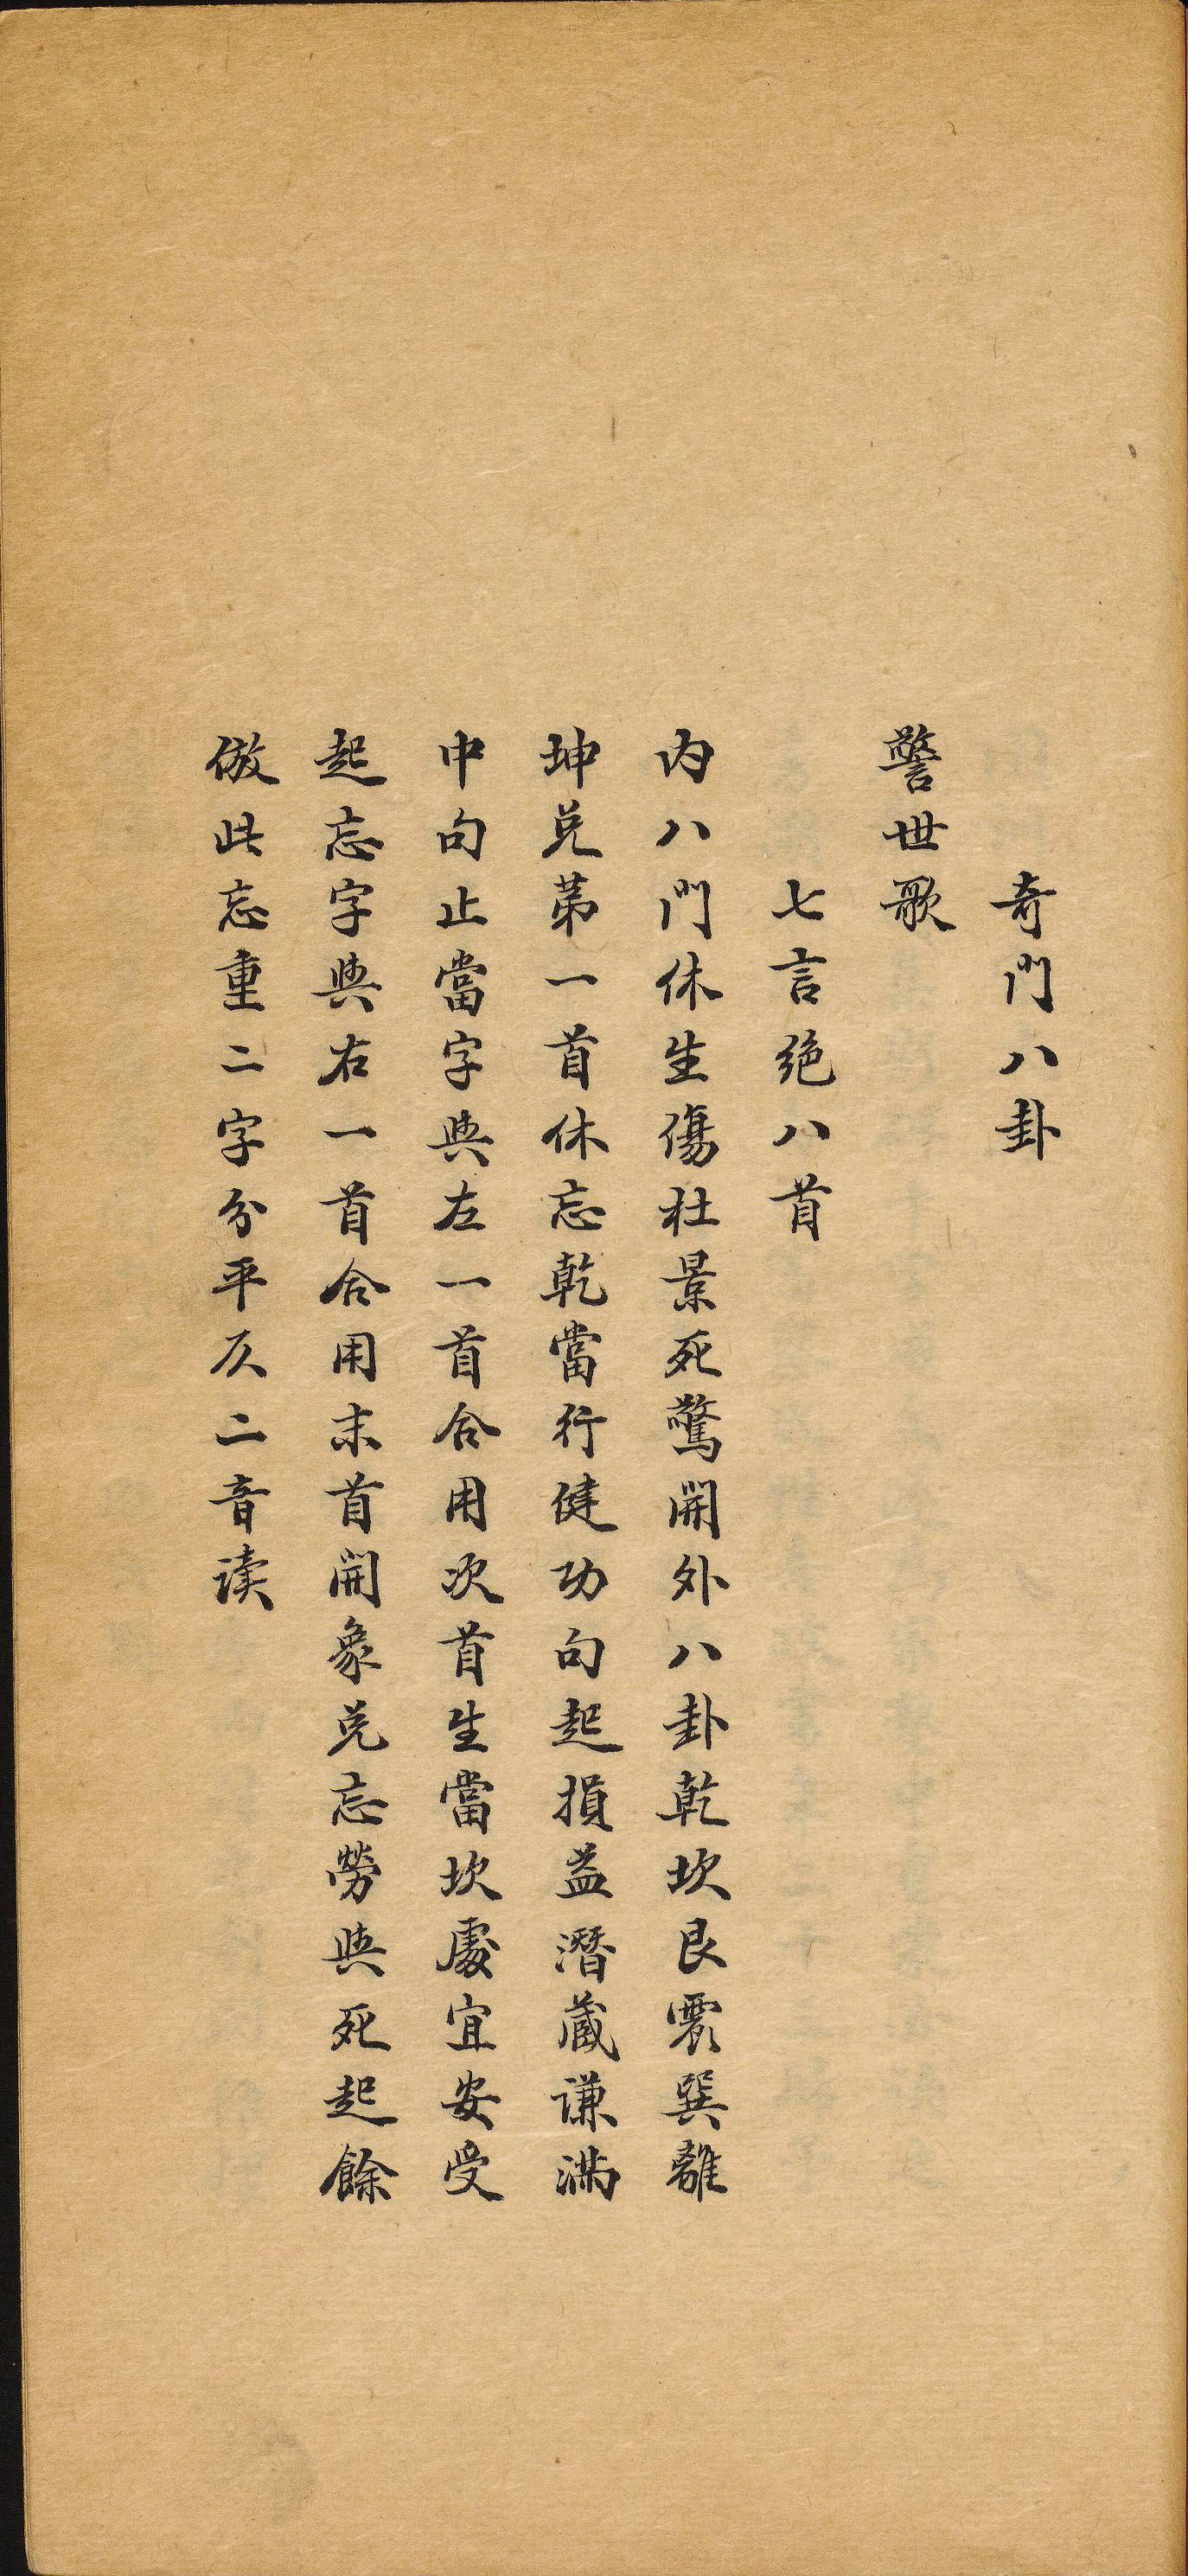 奇門八卦
警世歌
七言絶八首
内八門休生傷杜景死驚開外八卦乾坎艮震巽離
坤兑苐一首休忘乾當行健功句起損益潛藏谦满
中句止當字與左一首合用次首生當坎處宜安受
起忘字與右一首合用末首開象兑忘勞與死起餘
倣此忘重二字分平仄二音读